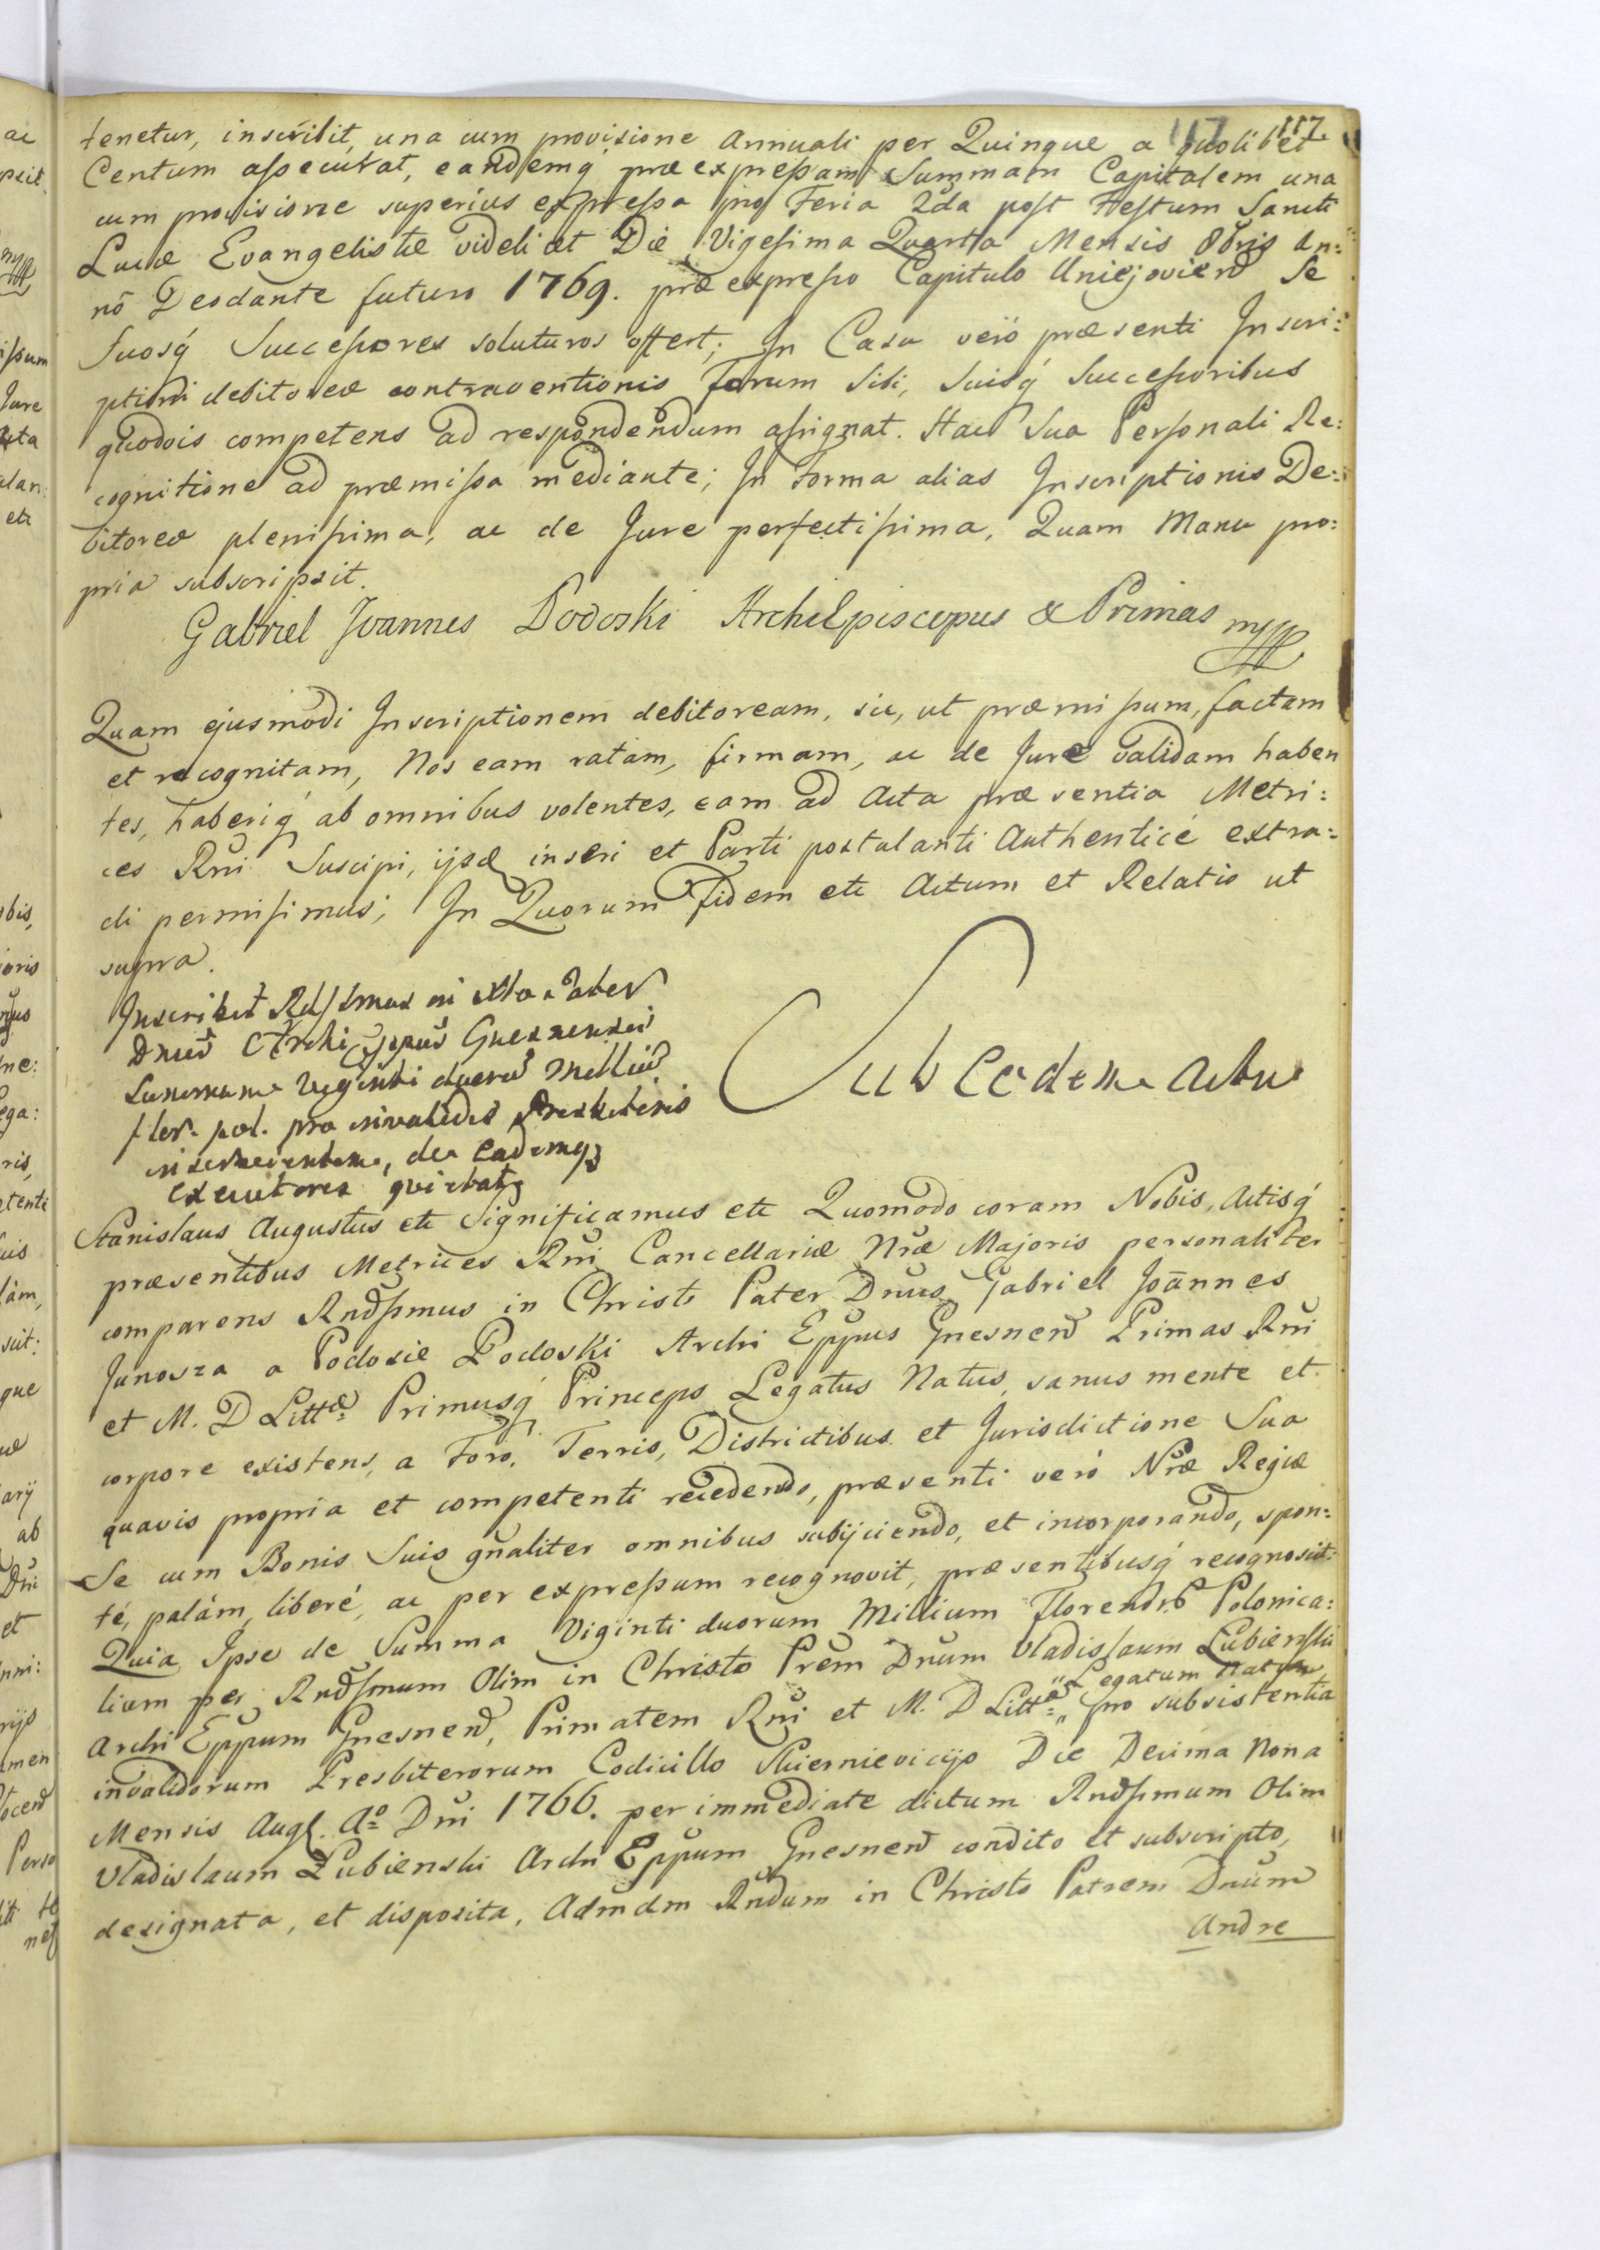 117 117.
tenetur, inscribit, una cum provisione Annuali per Quinque a quolibet
Centum assecurat, eandemq́ præexpressam Summam Capitalem una
cum provisione superiùs expressa pro Feria 2da post Festum Sancti
Lucæ Evangelistæ videlicet Die Vigesima Quarta Mensis 8bris An:
nō Deodante futuro 1769. præexpresso Capitulo Uniejovien Se
Suosq́ Successores soluturos offert; In Casu verò præsenti Inscri:
ptioni debitoreæ contraventionis Forum Sibi, Suisq́ Successoribus
quodvis competens ad respondendum assignat. Hac Sua Personali Re:
cognitione ad præmissa mediante; In Forma alias Inscriptionis De:
bitoreæ plenissima, ac de Jure perfectissima, Quam Manu pro:
pria subscripsit.
Gabriel Joannes Podoski ArchiEpiscopus & Primas mpp
Quam ejusmodi Inscriptionem debitoream, sic, ut præmissum, factam
et recognitam, Nos eam ratam, firmam, ac de Jure validam haben
tes, haberiq́ ab omnibus volentes, eam ad Acta præsentia Metri:
ces Rni Suscipi, ijsq inseri et Parti postulanti Authenticé extra:
di permisimus; In Quorum Fidem etc Actum et Relatio ut
supra.
Inscribit Rdssimus in Xto Pater
Dnus Archi Eppus Gnesnensis
Summam viginti duorum Millium
flor. pol. pro invalidis Presbiteris
inservientem, de eademq
executores quietat
Sub Eodem Actu
Stanislaus Augustus etc Significamus etc Quomodo coram Nobis, Actisq́
præsentibus Metrices Rni Cancellariæ Nræ Majoris personaliter
comparens Rndssmus in Christo Pater Dnus Gabriel Joānnes
Junosza a Podosie Podoski Archi Eppus Gnesnen Primas Rni
et M. D Litt. Primusq́ Princeps Legatus Natus, sanus mente et
corpore existens, a Foro, Terris, Districtibus et Jurisdictione Sua
quavis propria et competenti recedendo, præsenti veró Nræ Regiæ
Se cum Bonis Suis gnaliter omnibus subijciendo, et incorporando, spon:
té, palám, liberé, ac per expressum recognovit, præsentibusq́ recognoscit:
Quia Ipse de Summa Viginti duorum Millium Florenorū Polonica:
lium per Rndssmum Olim in Christo Prem Dnum Vladislaum Łubienski
Archi Eppum Gnesnen, Primatem Rni et M. D Litt. " Legatum Natum " pro subsistentia
invalidorum Presbiterorum Codicillo Skiernievicijs Die Decima Nona
Mensis Augt. Aō Dni 1766. per immediate dictum Rndssmum Olim
Vladislaum Łubienski Archi Eppum Gnesnen condito et subscripto,
designata, et disposita, Admdm Rndum in Christo Patrem Dnum
Andre